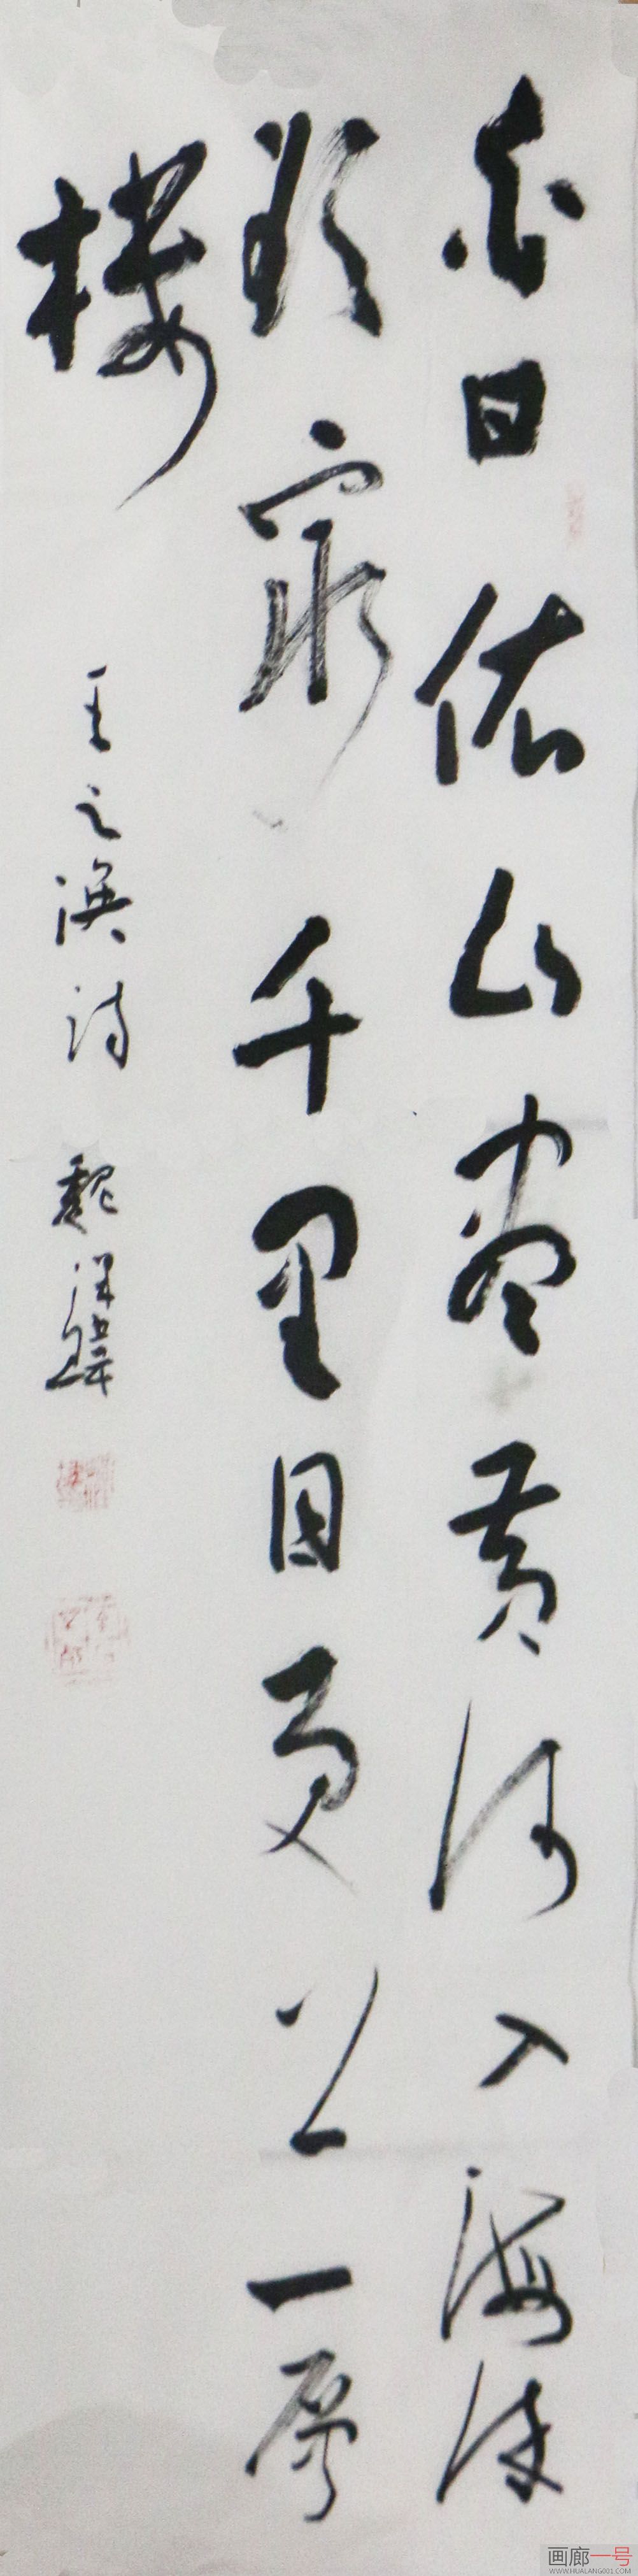 白日依山尽黄河入海流
欲窮千里目更上一層
樓
王之渙诗 魏
画廊一号
WWW.HUALANG001.COM